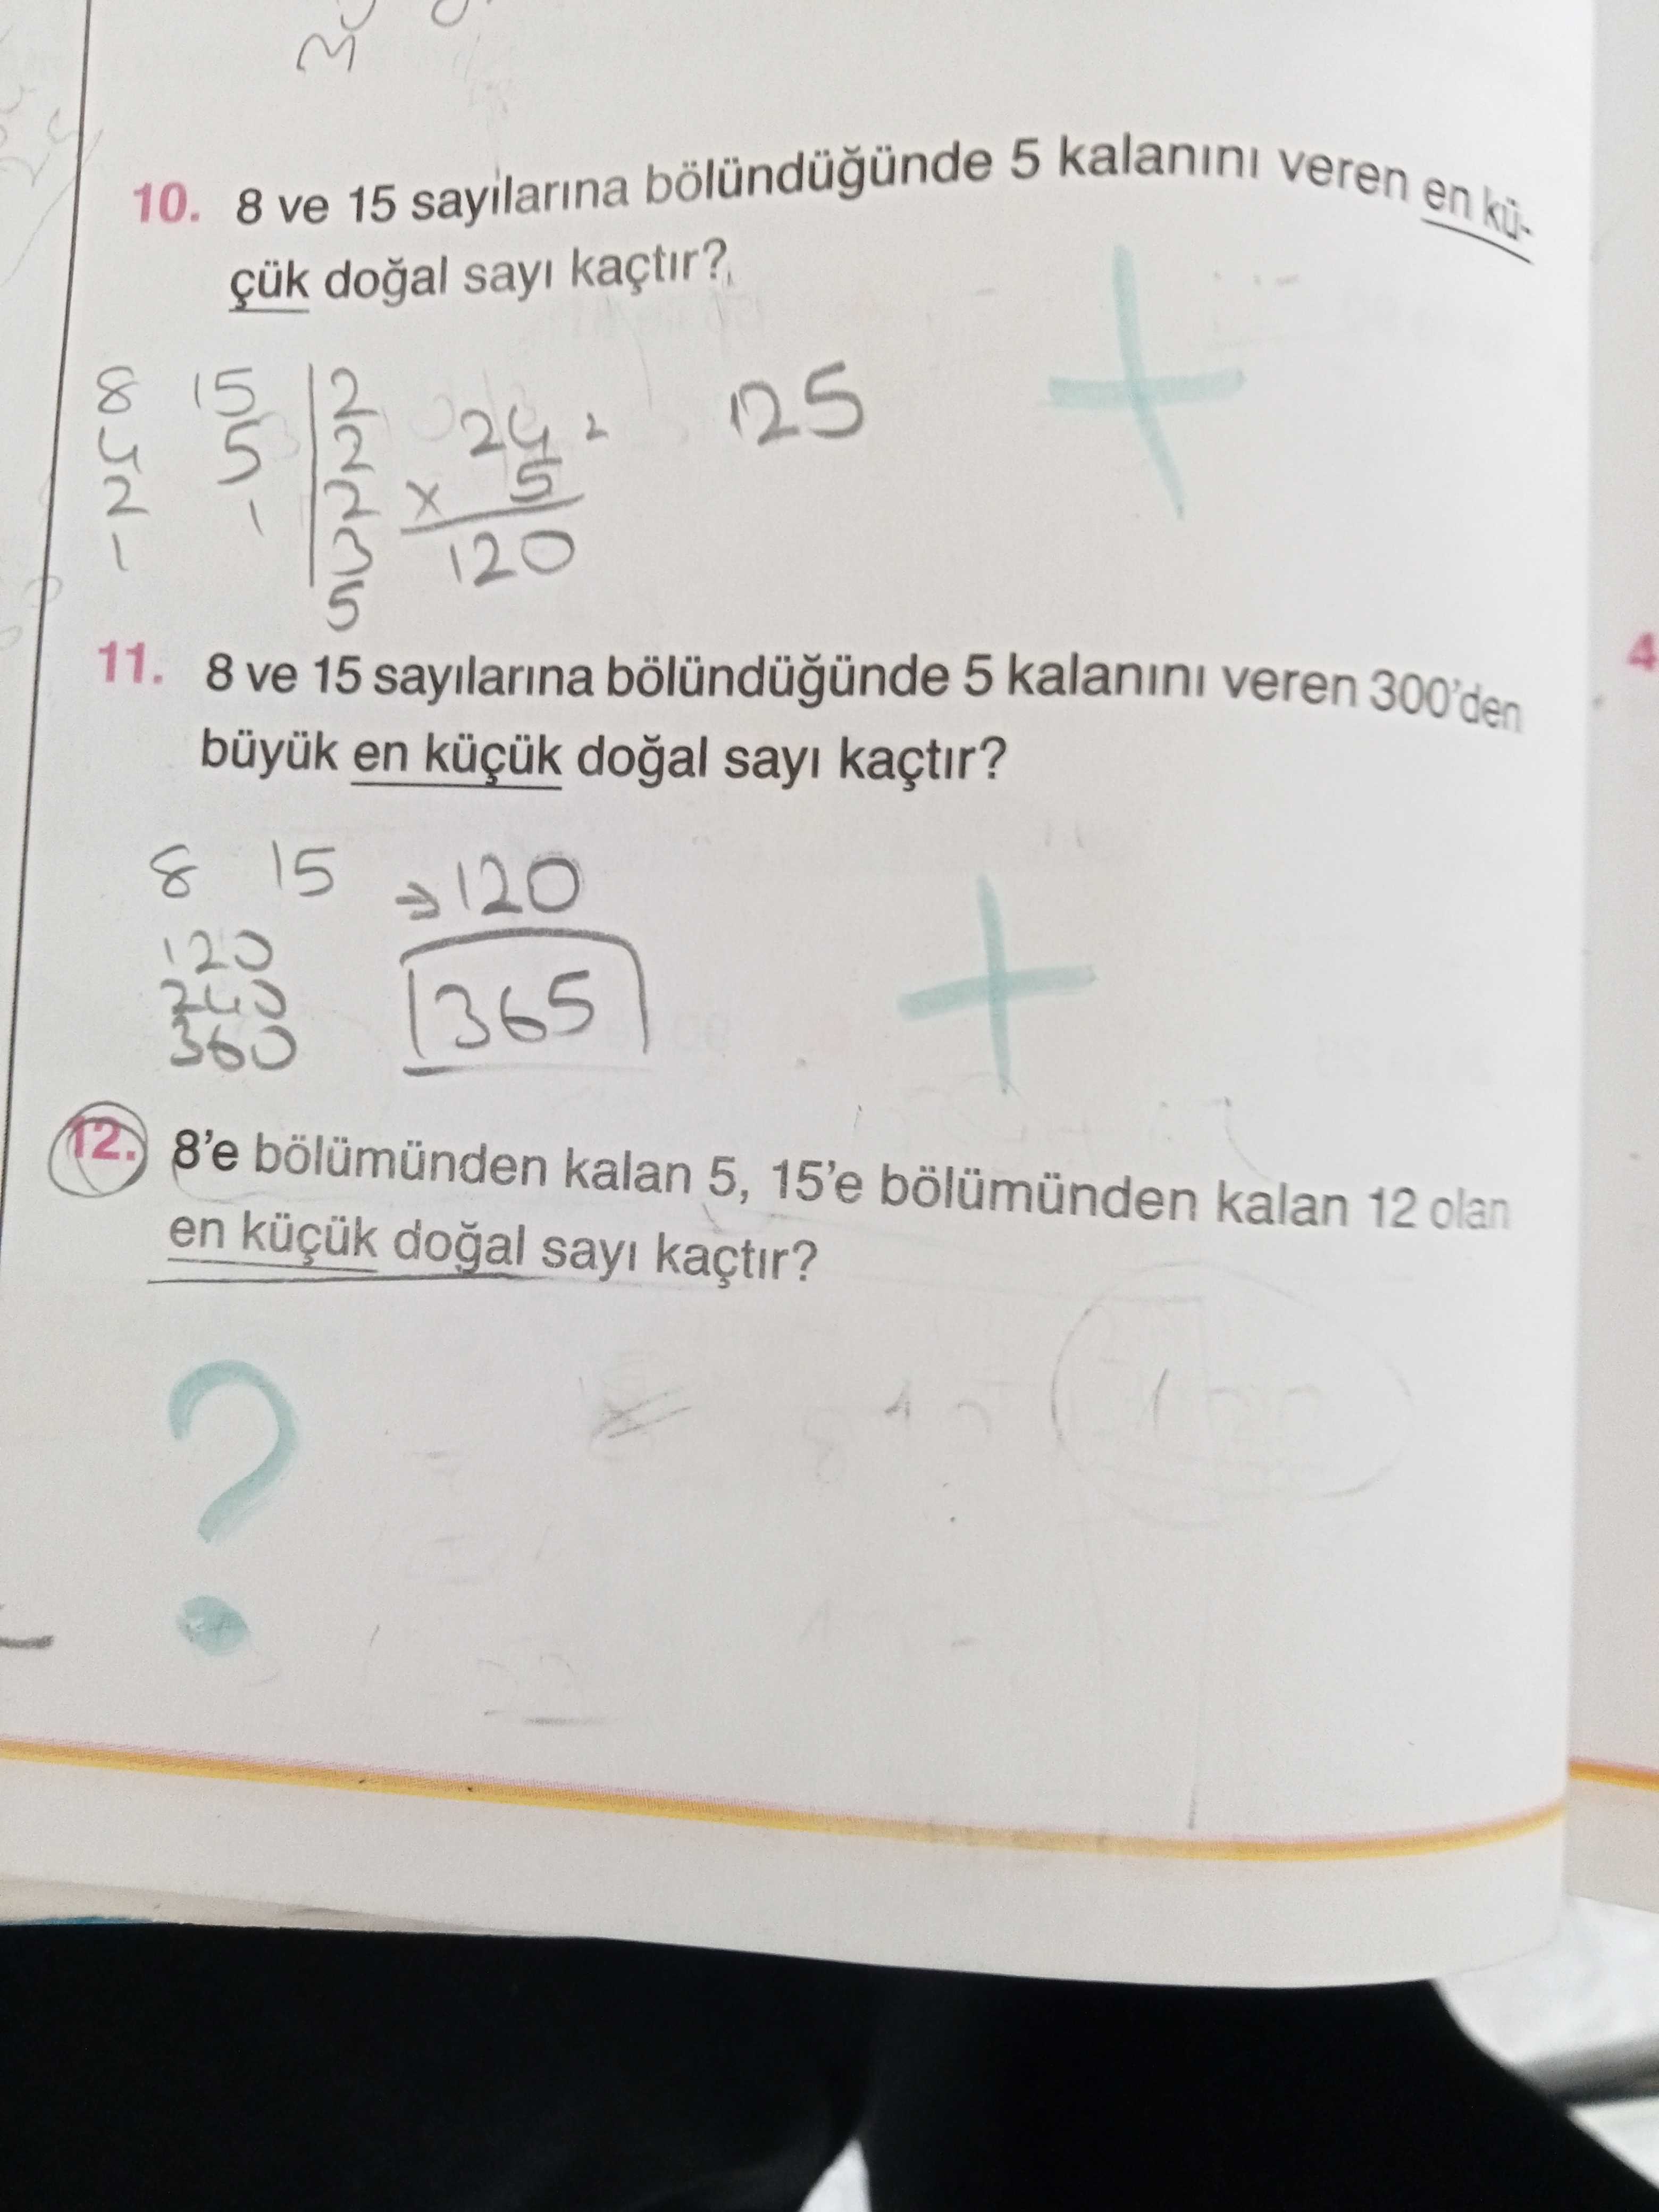 10. 8 ve 15 sayılarına bölündüğünde 5 kalanını veren en kü-
çük doğal sayı kaçtır?
8 15 2
4 5 2 24 125
2 1 2 x 5
1 3 120
5
11. 8 ve 15 sayılarına bölündüğünde 5 kalanını veren 300'den
büyük en küçük doğal sayı kaçtır?
8 15 →120
120
240 365
360
12. 8'e bölümünden kalan 5, 15'e bölümünden kalan 12 olan
en küçük doğal sayı kaçtır?
?
4